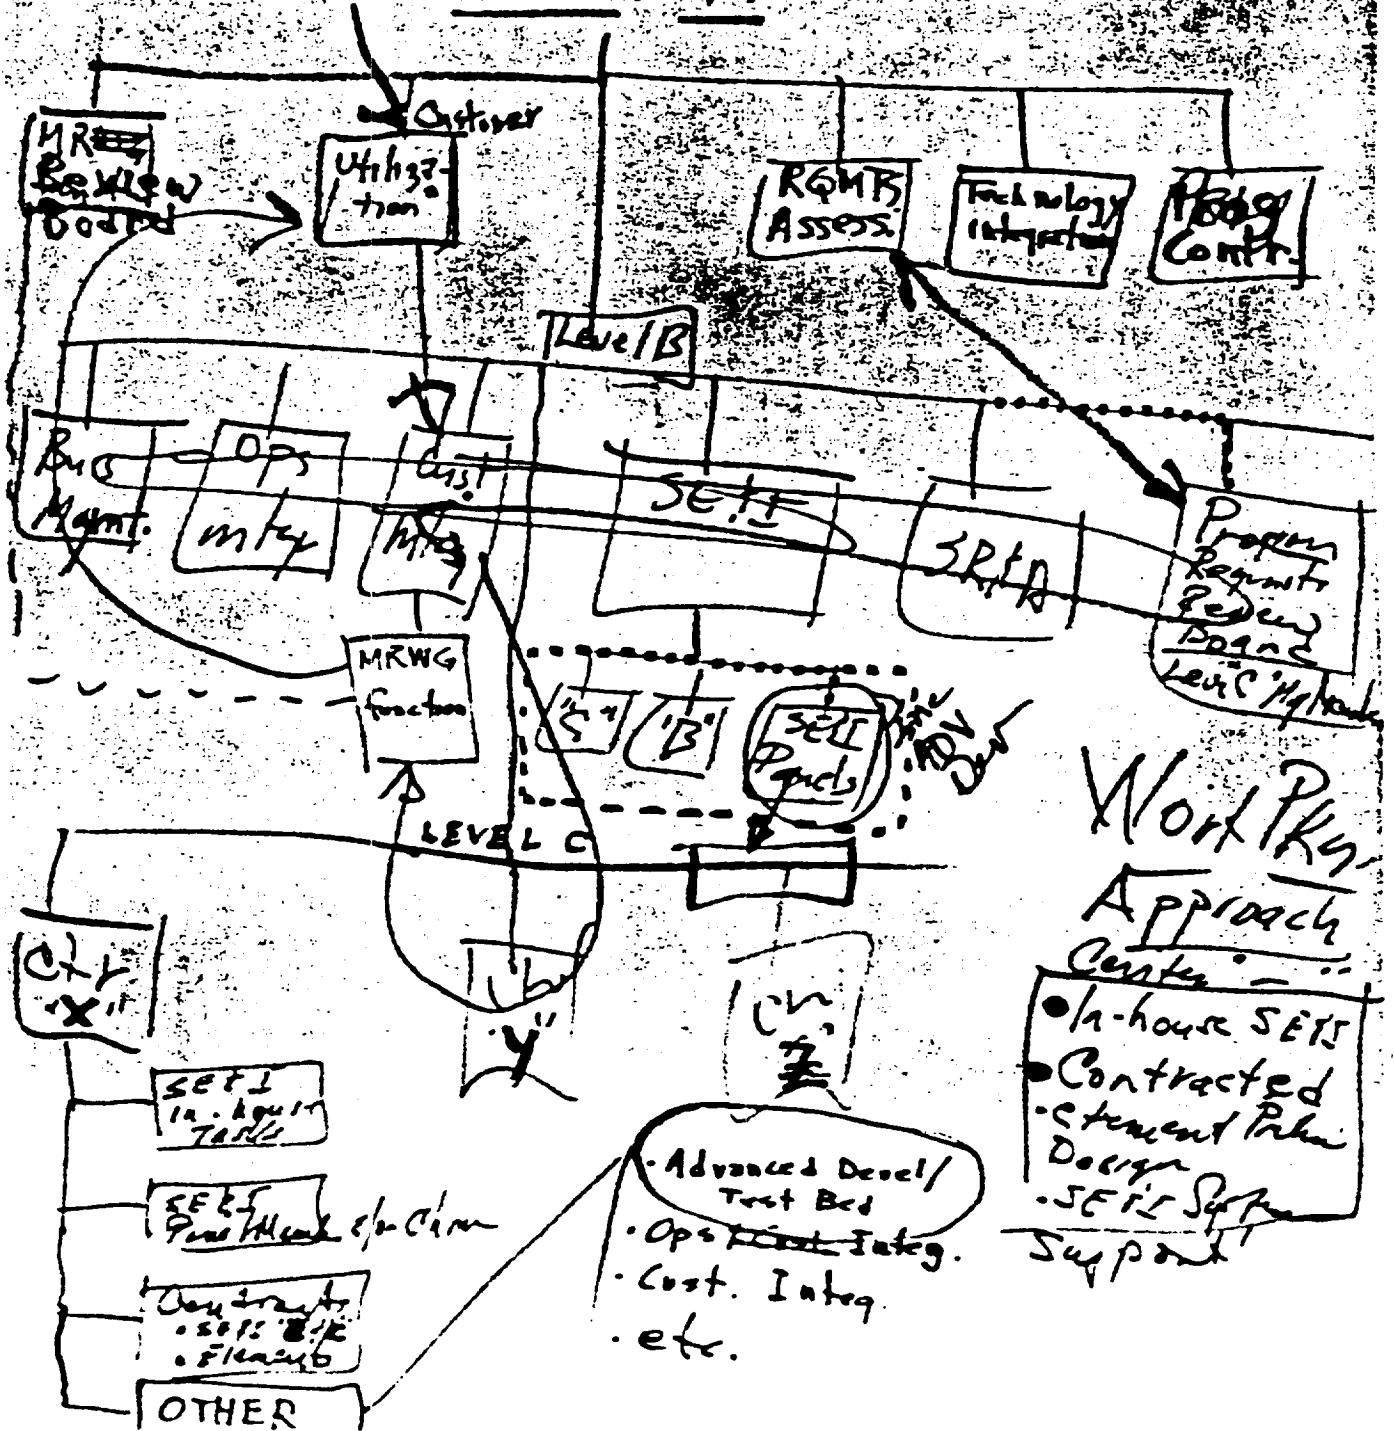 Customer
MR
Review
Board
Utiliza-
tion
RQMTS
Assess.
Technology
Integration
Prog
Contr.
Level B
Bus
Mgmt.
Ops
integ
Cust.
Integ
SE&I
SR&A
Program
Requmts
Review
Board
Level C
MRWG
function
"C"
"B"
SE&I
Panels
ADV
LEVEL C
Work Pkg.
Approach
Center
In-house SE&I
Contracted
• Element Prelim
Design
• SE&I System
Support
Ctr
"X"
"Y"
Ctr
Z
SE&I
in-house
Tasks
SE&I
Panel
Contracts
• SE&I
• Elements
OTHER
• Advanced Devel/
Test Bed
• Ops Integ.
• Cust. Integ.
• etc.